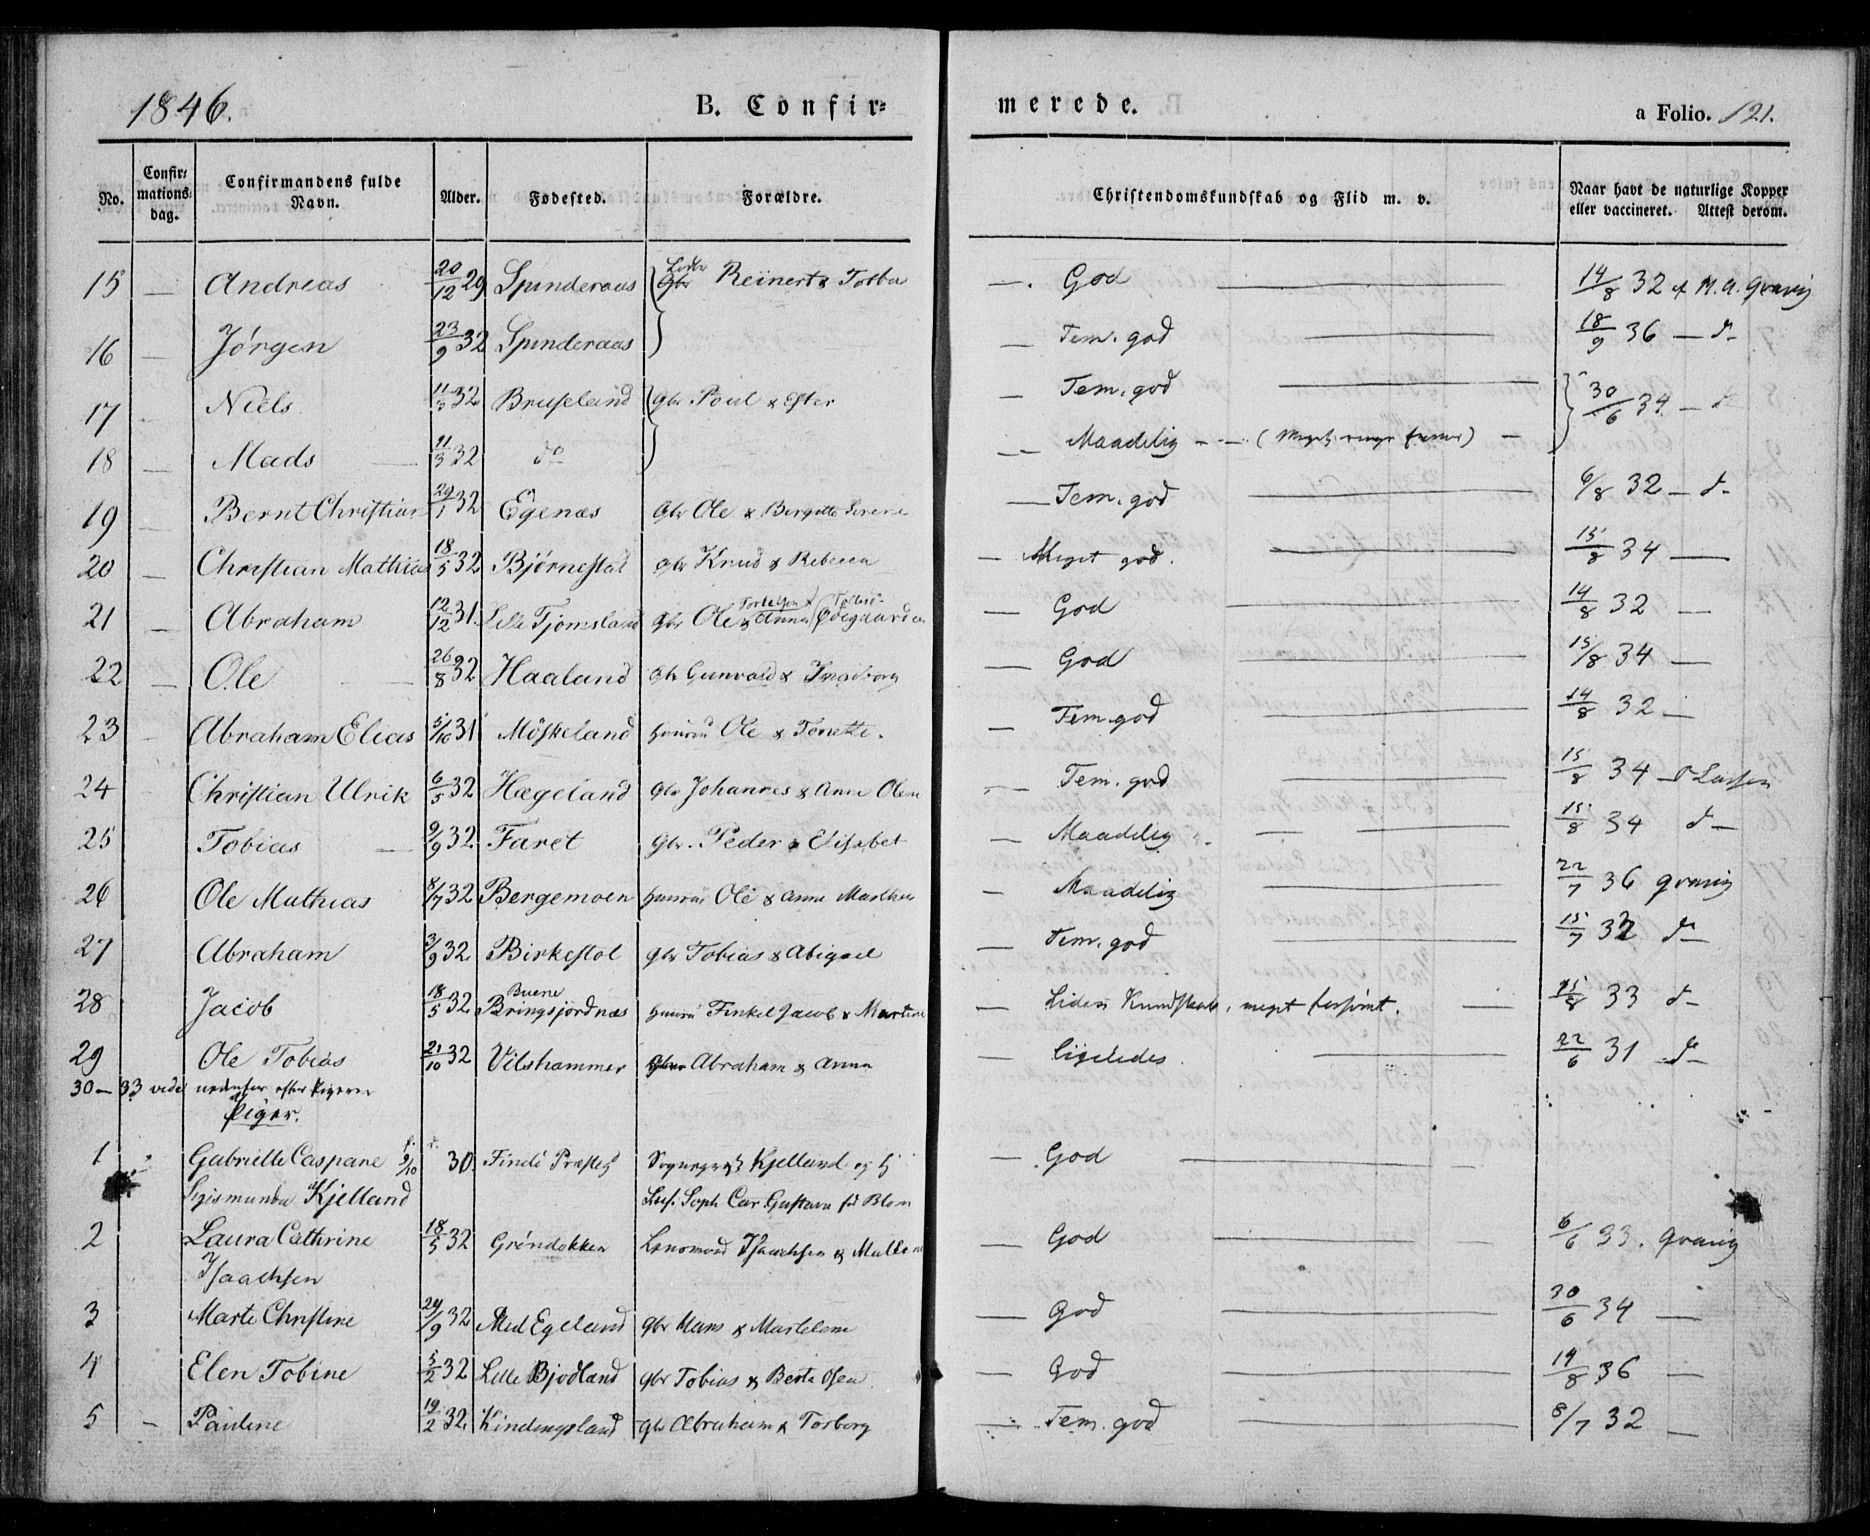 1846.
B. Confir-
merede.
a Folio. 121.
No. Confir-mations dag. Confirmandens fulde Navn. Alder. Fødested. Forældre. Christendomskundskab og Flid m. v. Naar havt de naturlige Kopper eller vaccineret. Attest derom.
15 — Andreas 20/12 29 Spinderaas Gbr Reinert & —. God — 14/8 32 af M. A. Gravig
16 — Jørgen 23/9 32 Spinderaas — Tem. god — 18/9 36 — d—
17 — Niels 11/3 32 Bruseland Gbr Poul & Ester — Tem. god — 30/6 34 — d
18 — Mads — 11/3 32 do — Maadelig — — (Meget ringe —
19 — Bernt Christian 29/1 32 Egenæs Gbr Ole & Birgitte Serene — Tem. god — 6/8 32 — d—
20 — Christian Mathias 18/5 32 Bjørnestad Gbr Knud & Rebecca — Meget god. — 15/8 34 —
21 — Abraham 12/12 31. Lille Tjomsland Gbr Ole Torkelsen & Anna Ødegaarden — God — 14/8 32 —
22 — Ole — 26/8 32 Haaland Gbr Gunvald & Ingeborg — God — 15/8 34 —
23 — Abraham Elias 5/10 31 Möskeland Ole & Tonette. — Tem. god — 14/8 32 —
24 Christian Ulrik 6/5 32 Hægeland Gbr Johannes & Anne Olene — Tem. god — 15/8 34 — d Lassen
25 Tobias — 9/9 32 Faret Gbr. Peder & Elisabet — Maadelig — — 15/8 34 d—
26 Ole Mathias 8/7 32 Bergemoen Ole & Anne Marthea — Maadelig — 22/7 36 Gravig
27 Abraham 3/9 32 Birkestol Gbr Tobias & Abigael — Tem. god — 15/7 32 d—
28 Jacob 18/5 32 Buene Bringsjordnæs Finkel Jacob & Martine — Liden Kundskab, meget forsømt. — 15/8 33 d—
29 Ole Tobias 21/10 32 Vilshammer Abraham & Anna — ligeledes. — 22/6 31 d—
30 — 33 vide nedenfor efter Pigerne
Piger.
1 Gabrielle Caspane 9/10 30 Findö Præstegd Sognepræst Kjelland og — God —
Sigismunda Kjelland Soph. Car. Gustava fd Blom
2 Laura Cathrine 18/5 32 Gröndokken Lensmand Isaachsen & — God — 6/6 33. Gravig
Isaachsen
3 Marte Christine 24/9 32 Med Egeland Gbr Hans & Martelene — God — 30/6 34 —
4 Elen Tobine 5/2 32 Lille Bjodland Gbr Tobias & Berte Olsen — God — 19/8 36 —
5 — Pauline 19/2 32. Kindingsland Gbr Abraham & Torborg — Tem. god — 8/7 32 —